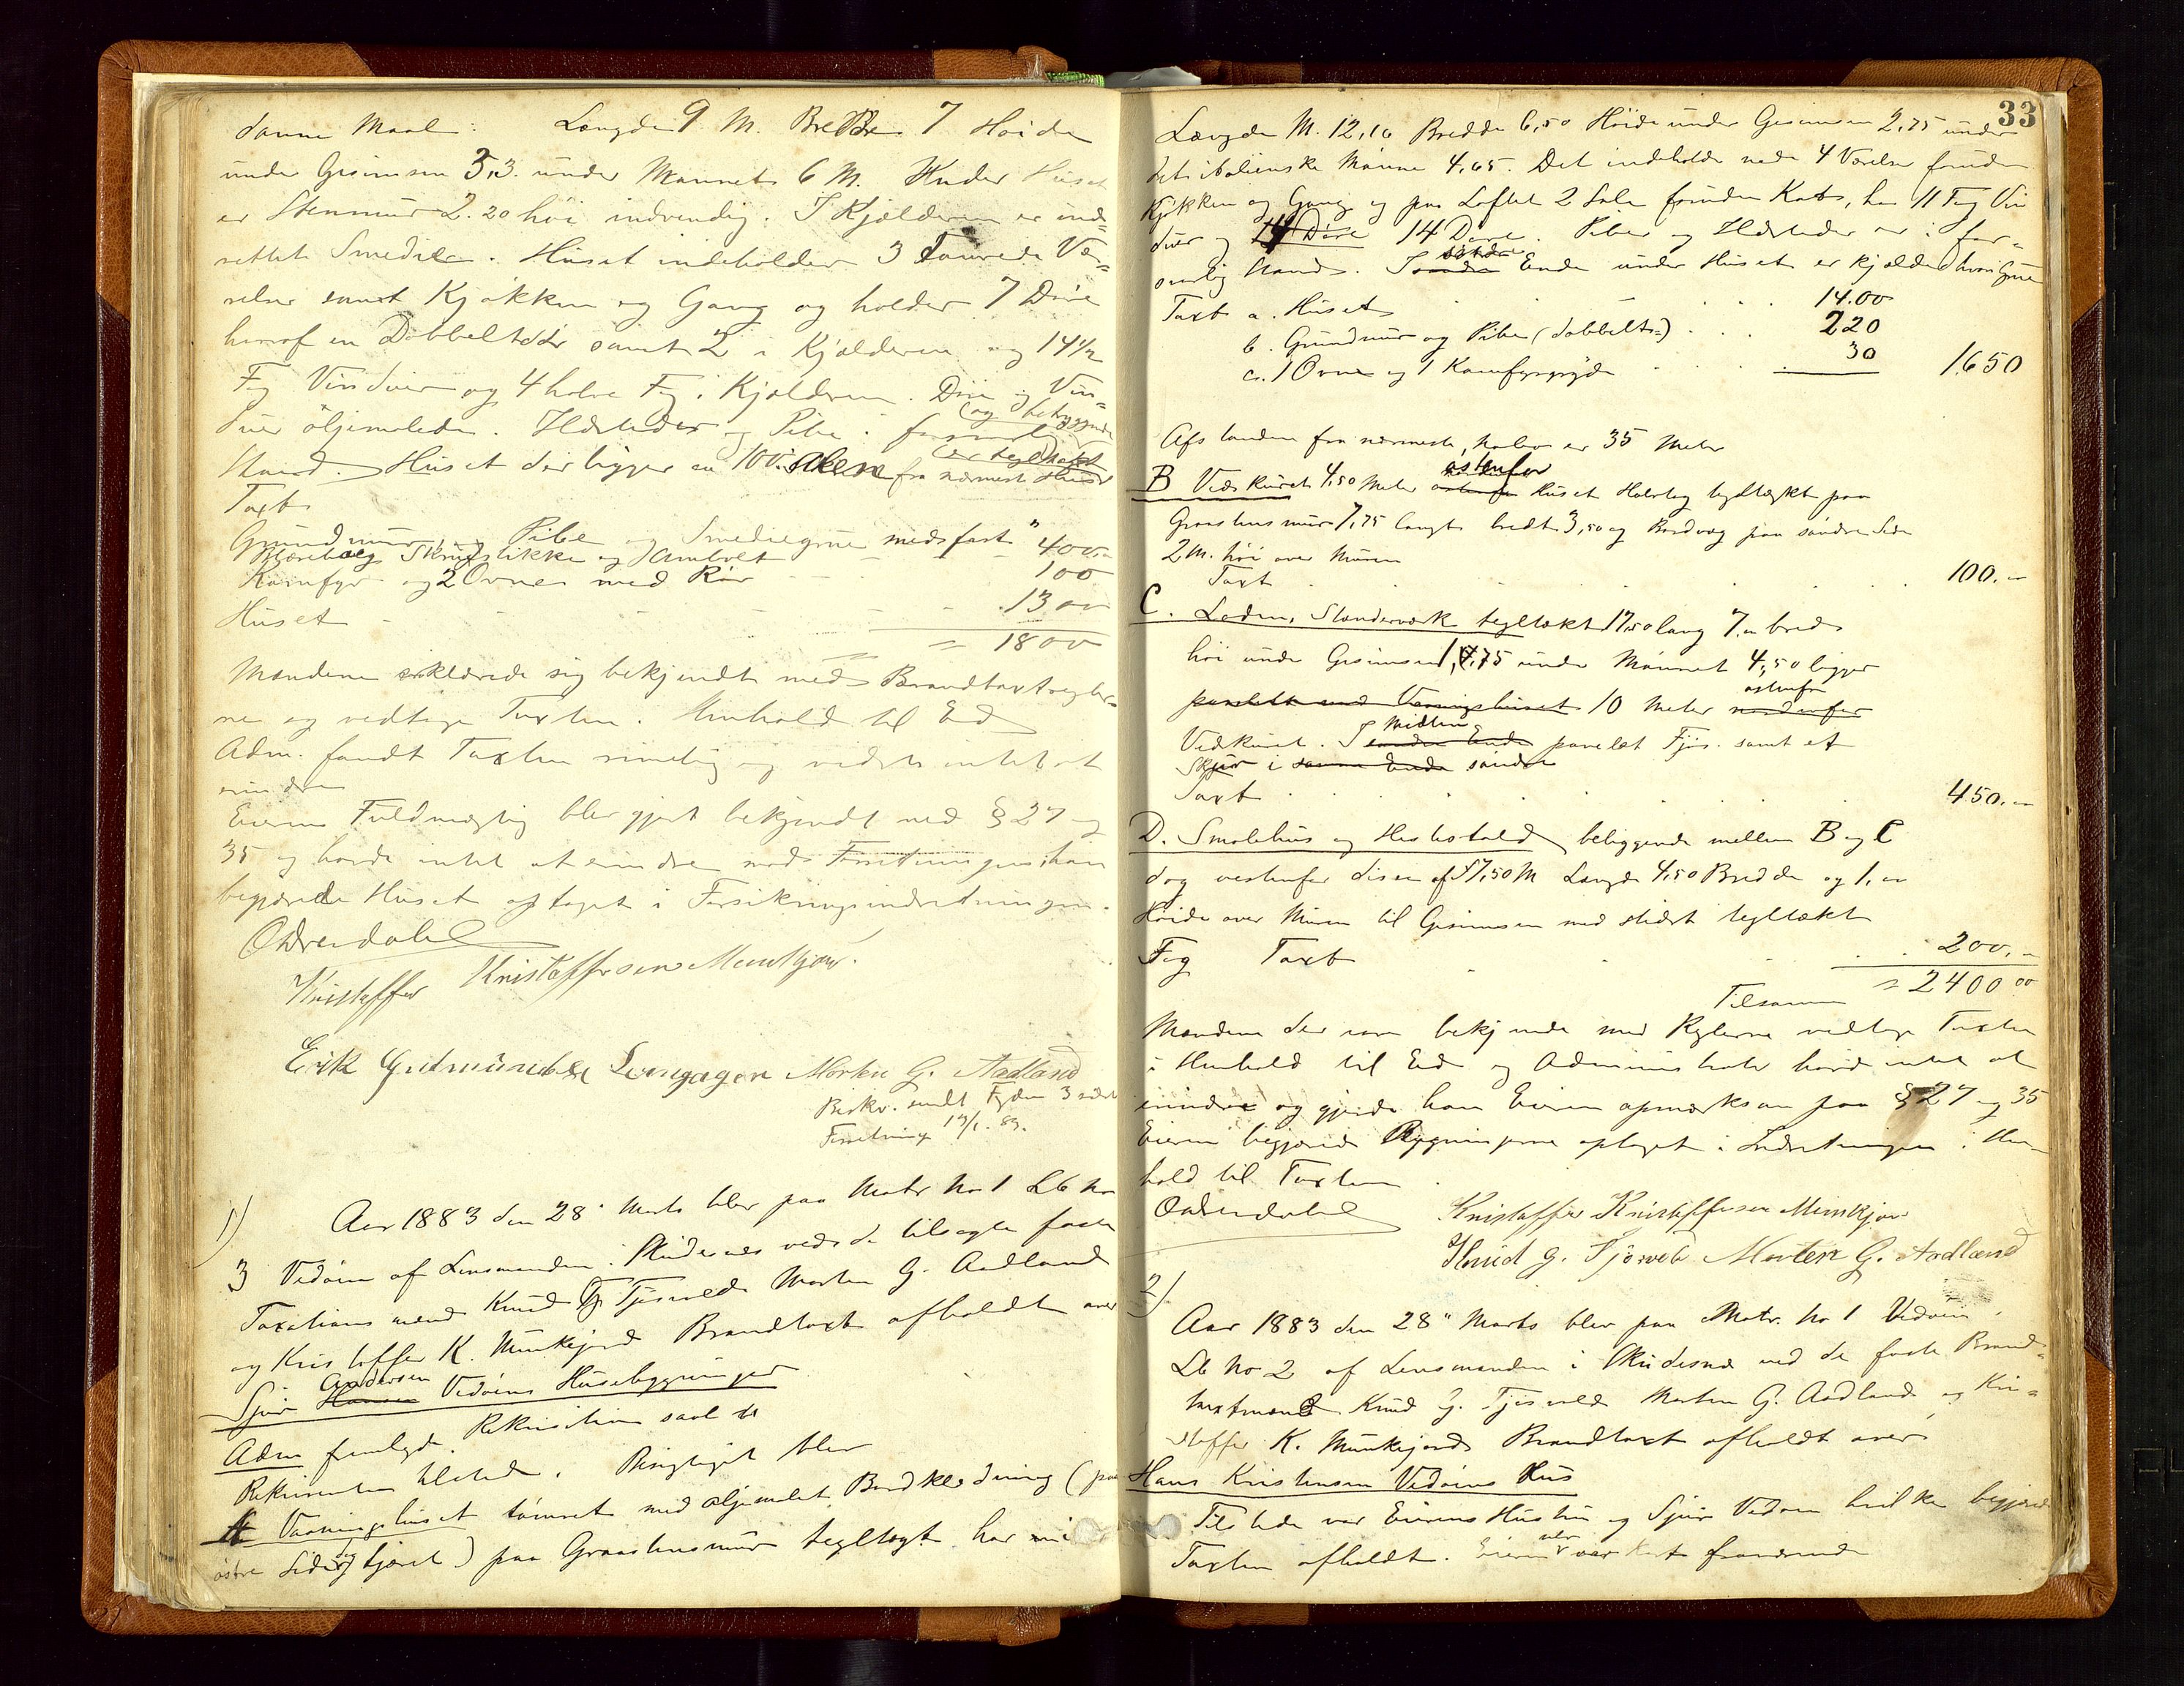 danne Maal: Længde 9 M. Bredde 7 Høide
under Gesimsen 3,3. under Mønnet 6 M. Under Huset
er Stenmur 2.20 høi indvendig. I Kjælderen er ind=
rettet Smedie. Huset indeholder 3 Væ=
relser samt Kjøkken og Gang og holder 7 Døre
heraf en Dobbeltdør samt 2 i Kjælderen og 14½
Fag Vinduer og 4 halve Fag i Kjælderen. Døre og Vin=
duer oljemalede. Ildsteder og Pibe i forsvarlig
(og betryggende
Stand. Huset der ligger 100 Alen fra nærmeste Huse
(er tegltækt
Taxt
Grundmur, Pibe og Smediegrue med fast " 400.-
Blæsebælg Skruestikke og Ambolt
Komfyr og 2 Ovne med Rør - - - 100
Huset - - - - 1300
= 1800
Mændene erklærede sig bekjendt med Brandtaxtregler=
ne og vedtoge Taxten i Henhold til Ed
Adm. fandt Taxten rimelig og vidste intet at
erindre
Eierens Fuldmægtig blev gjort bekjendt med § 27 og
35 og havde intet at erindre mod Forretningen, han
begjærede Huset optaget i Forsikringsindretningen.
O Drendahl
Kristoffer Kristoffersen Munkjor.
Erik Gudmundsen Longager Morten G. Aadland
Beskr. sendt
Forretning 17/1. 83.
1) Aar 1883 den 28' Marts blev paa Matr No 1 Lb No
3 Vedøen af Lensmanden i Skudesnes ved de tilsagte faste
Taxationsmænd Knud G Tjøsvold Morten G. Aadland
og Kristoffer K. Munkejord Brandtaxt afholdt over
Andersen
Sjur Hansen Vedøens Husebygninger
Adm fremlagde Rekvisition saal
Rekvirenten tilstede. Besigtiget blev
A Vaaningshuset tømret med oljemalet Bordklædning (paa
østre Side og tjæret) paa Graastensmur tegltagt har
33
Længde M. 12,10 Bredde 6,50 Høide under Gesimsen 2,75 under
det italienske Mønne 4,65. Det indeholder nede 4 Værelser foruden
Kjøkken og Gang og paa Loftet 2 Sale foruden Kot, har 11 Fag Vin
duer og 14 Døre 14 Døre. Piber og Ildsteder er i for=
svarlig Stand. I søndre Ende under Huset er kjælder hvori Grue
Taxt a. Huset . . . 14.00
b. Grundmur og Pibe (dobbelt) . . 220
c. 1 Ovn og 1 Komfyrgryde . . . 30 1650
Afstanden fra nærmeste Nabo er 35 Meter
østenfor
B Vedskuret 4,50 Meter østenfor Huset Halvtag tegltækt paa
Graastensmur 7,75 langt bredt 3,50 og Bordvæg paa søndre Side
2 M. høi over Muren
Taxt . . . 100.-
C. Laden, Stenderværk tegltækt 17,50 lang 7,- bred
høi under Gesimsen 1,75 under Mønnet 4,50 ligger
parallelt med Vaaningshuset 10 Meter nordenfor
østenfor
Vedskuret. I søndre Ende panelet Fjøs. samt et
Midten
Skjur i samme Ende søndre
Taxt . . . 450.-
D. Smalehus og Hestestald beliggende mellem B og C
dog vestenfor disse af 17,50 M Længde 4,50 Bredde og 1,-
Høide over Muren til Gesimsen med tegltækt
Tag Taxt . . 200.-
Tilsammen = 2400 00
Mændene der vare bekjendte med Reglerne vedtoge Taxten
i Henhold til Ed og Administrator havde intet at
erindre og gjorde han Eieren opmærksom paa § 27 og 35
Eieren begjærede Bygningerne optaget i Indretningen i Hen
hold til Taxten.
O Drendahl Kristoffer Kristoffersen Munkjor
Knud G. Tjøsvold Morten G. Aadland
2)
Aar 1883 den 28" Marts blev paa Matr. No 1 Vedøen
Lb No 2 af Lensmanden i Skudesnes ved de faste Brand=
taxtmænd Knud G. Tjøsvold Morten G. Aadland og Kri=
stoffer K. Munkejord Brandtaxt afholdt over
Hans Kristensen Vedøens Hus
Tilstede var Eierens Hustru og Sjur Vedøen hvilke begjærede
Taxten afholdt. Eieren var fraværende